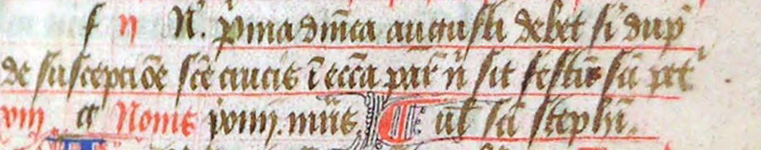 f n N. pima dnica augusti debet si dup
de suscepcioe sce crucis i ecca par n sit festu sci pet
viij c Nonis xviij. miis Cul sci stephi.